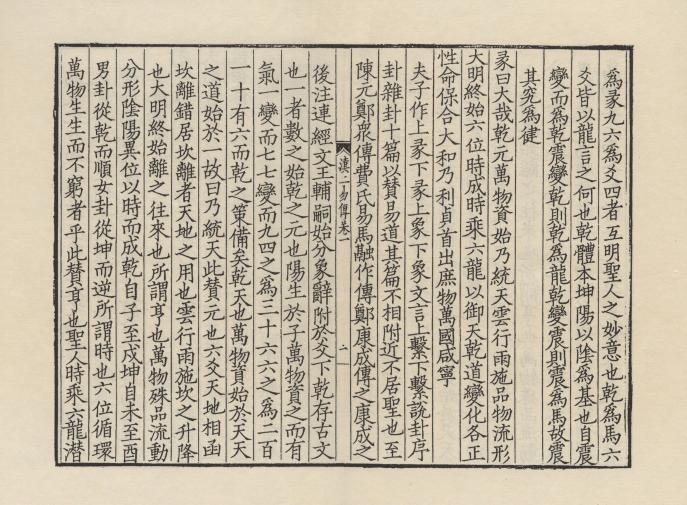 為彖九六為爻四者互明聖人之妙意也乾為馬六
爻皆以龍言之何也乾體本坤陽以陰為基也自震
變而為乾震變乾則乾為龍乾變震則震為馬故震
其究為健
彖曰大哉乾元萬物資始乃統天雲行雨施品物流形
大明終始六位時成時乘六龍以御天乾道變化各正
性命保合大和乃利貞首出庶物萬國咸寧
夫子作上彖下彖上象下象文言上繫下繫說卦序
卦雜卦十篇以贊易道其篇不相附近不居聖也至
陳元鄭眾傳費氏易馬融作傳鄭康成傳之康成之
漢上易傳卷一
二
後注連經文王輔嗣始分象辭附於爻下乾存古文
也一者數之始乾之元也陽生於子萬物資之而有
氣一變而七七變而九四之為三十六六之為二百
一十有六而乾之策備矣乾天也萬物資始於天天
之道始於一故曰乃統天此贊元也六爻天地相函
坎離錯居坎離者天地之用也雲行雨施坎之升降
也大明終始離之往來也所謂亨也萬物殊品流動
分形陰陽異位以時而成乾自子至戌坤自未至酉
男卦從乾而順女卦從坤而逆所謂時也六位循環
萬物生生而不窮者乎此贊亨也聖人時乘六龍潛